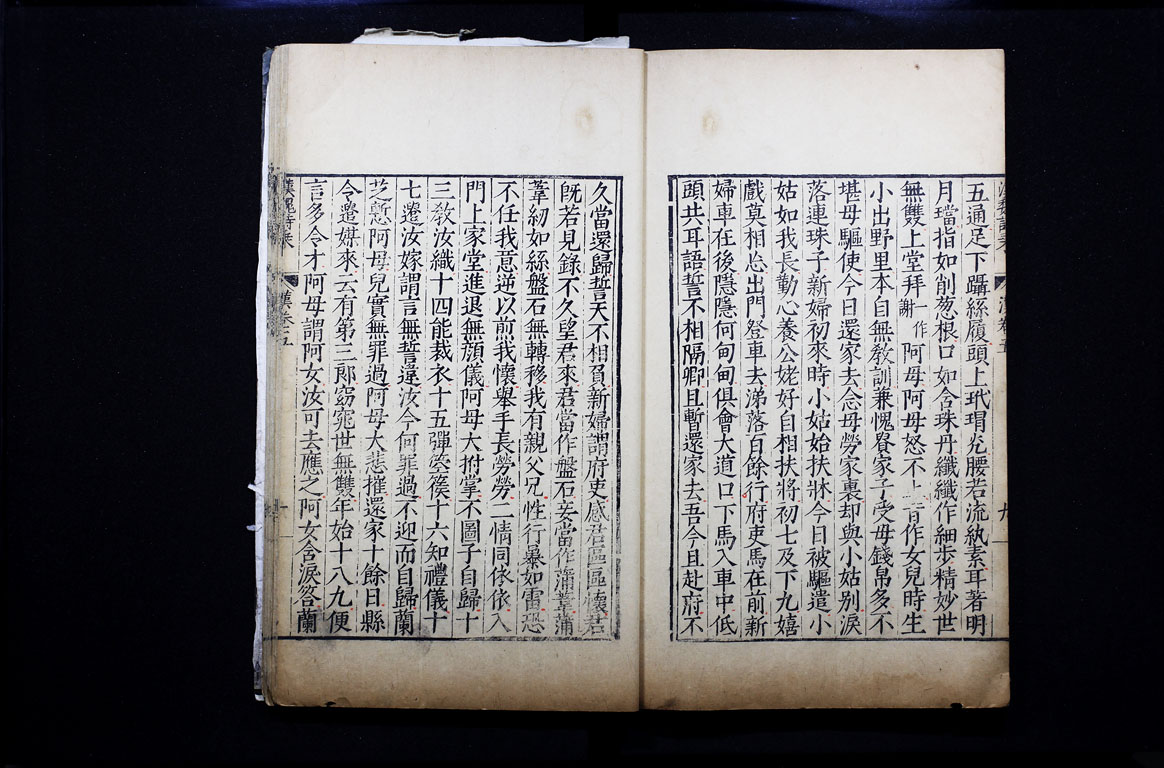 五通足下躡絲履頭上玳瑁光腰若流紈素耳著明
月璫指如削葱根口如含珠丹纖纖作細步精妙世
無雙上堂拜一作謝阿母阿母怒不止昔作女兒時生
小出野里本自無敎訓兼愧貴家子受母錢帛多不
堪母驅使今日還家去念母勞家裏却與小姑别淚
落連珠子新婦初來時小姑始扶牀今日被驅遣小
姑如我長勤心養公姥好自相扶將初七及下九嬉
戲莫相忘出門登車去涕落百餘行府吏馬在前新
婦車在後隱隱何甸甸俱會大道口下馬入車中低
頭共耳語誓不相隔卿且暫還家去吾今且赴府不
久當還歸誓天不相負新婦謂府吏感君區區懷君
旣若見錄不久望君來君當作盤石妾當作蒲葦蒲
葦紉如絲盤石無轉移我有親父兄性行暴如雷恐
不任我意逆以煎我懷舉手長勞勞二情同依依入
門上家堂進退無顏儀阿母大拊掌不圖子自歸十
三敎汝織十四能裁衣十五彈箜篌十六知禮儀十
七遣汝嫁謂言無誓違汝今何罪過不迎而自歸蘭
芝慙阿母兒實無罪過阿母大悲摧還家十餘日縣
令遣媒來云有第三郎窈窕世無雙年始十八九便
言多令才阿母謂阿女汝可去應之阿女含淚答蘭
漢魏詩乘
漢卷之五